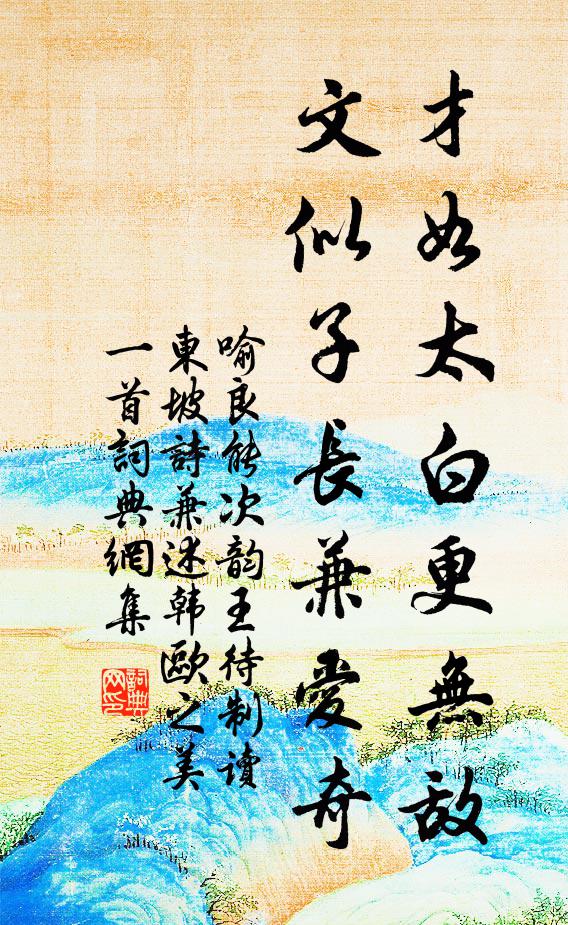 才如太白更無敵
文似子長兼愛奇
喻良能次韵王待制读
東坡詩兼述韩歐之美
一首詞典網集
詞典
网印